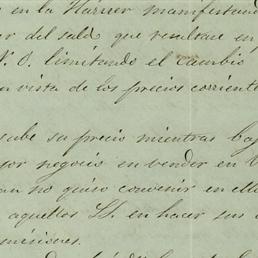 en la Harrer manifestand
er del saldo que resultare en
V. O. limitando el cambio
en vista de los precios corriente
sube su precio mientras baj
jor negocio en vender en
an no quiso convenir en ella
aquellos SS. en hacer sus
misiones.